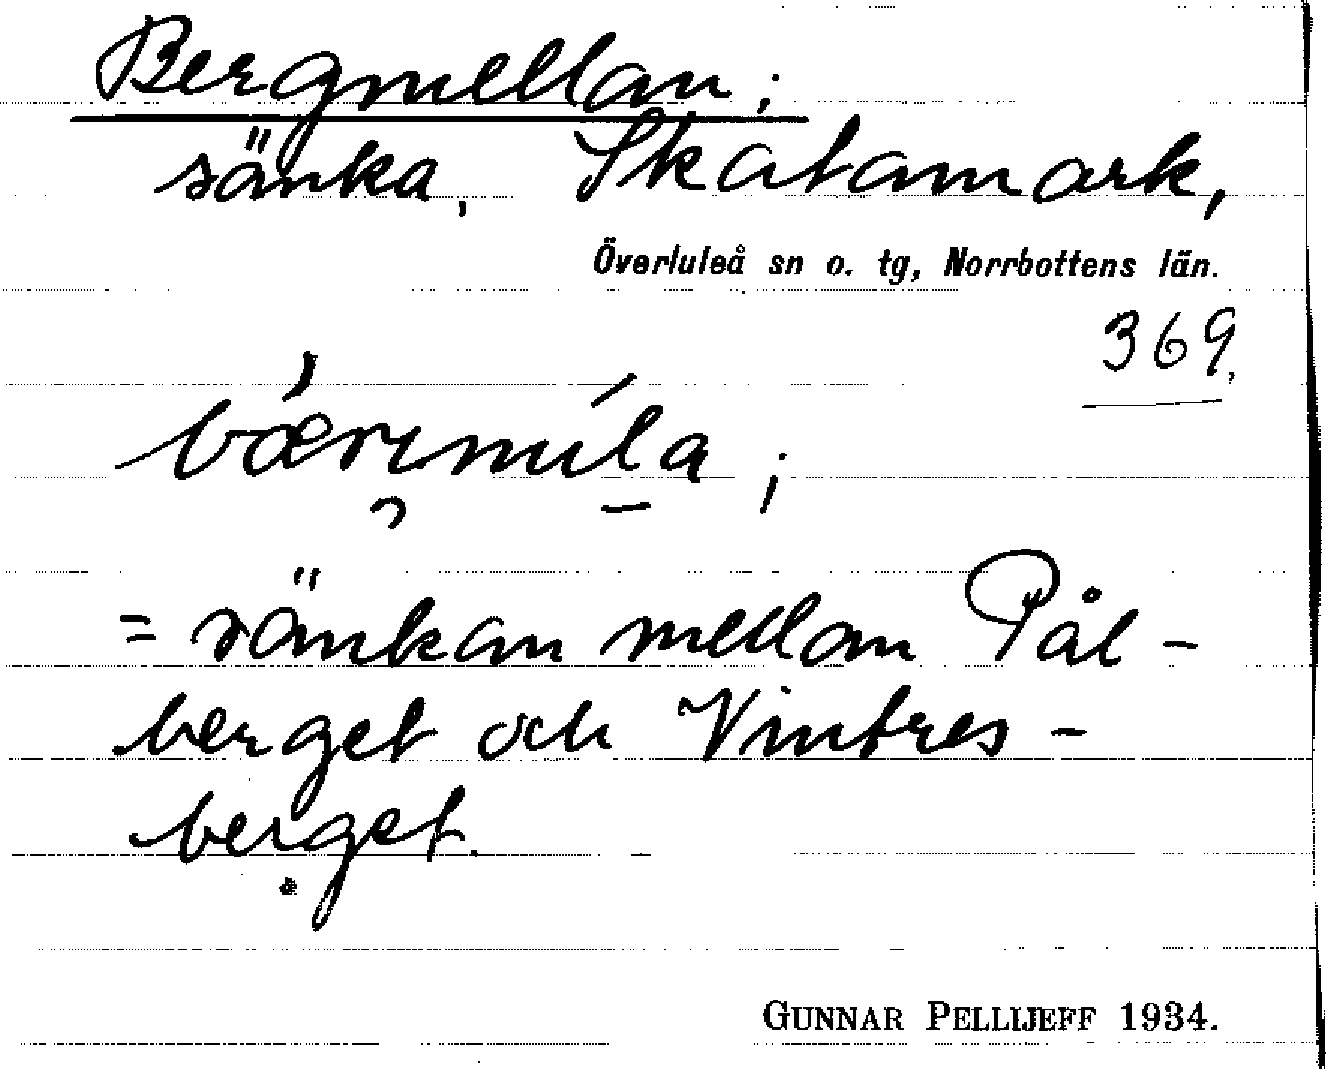 Bergmellan;
sänka, Skatamark,
Överluleå sn o. tg, Norrbottens län.
369,
= sänkan mellan Pål-
berget och Vintres-
berget.
GUNNAR PELLIJEFF 1934.